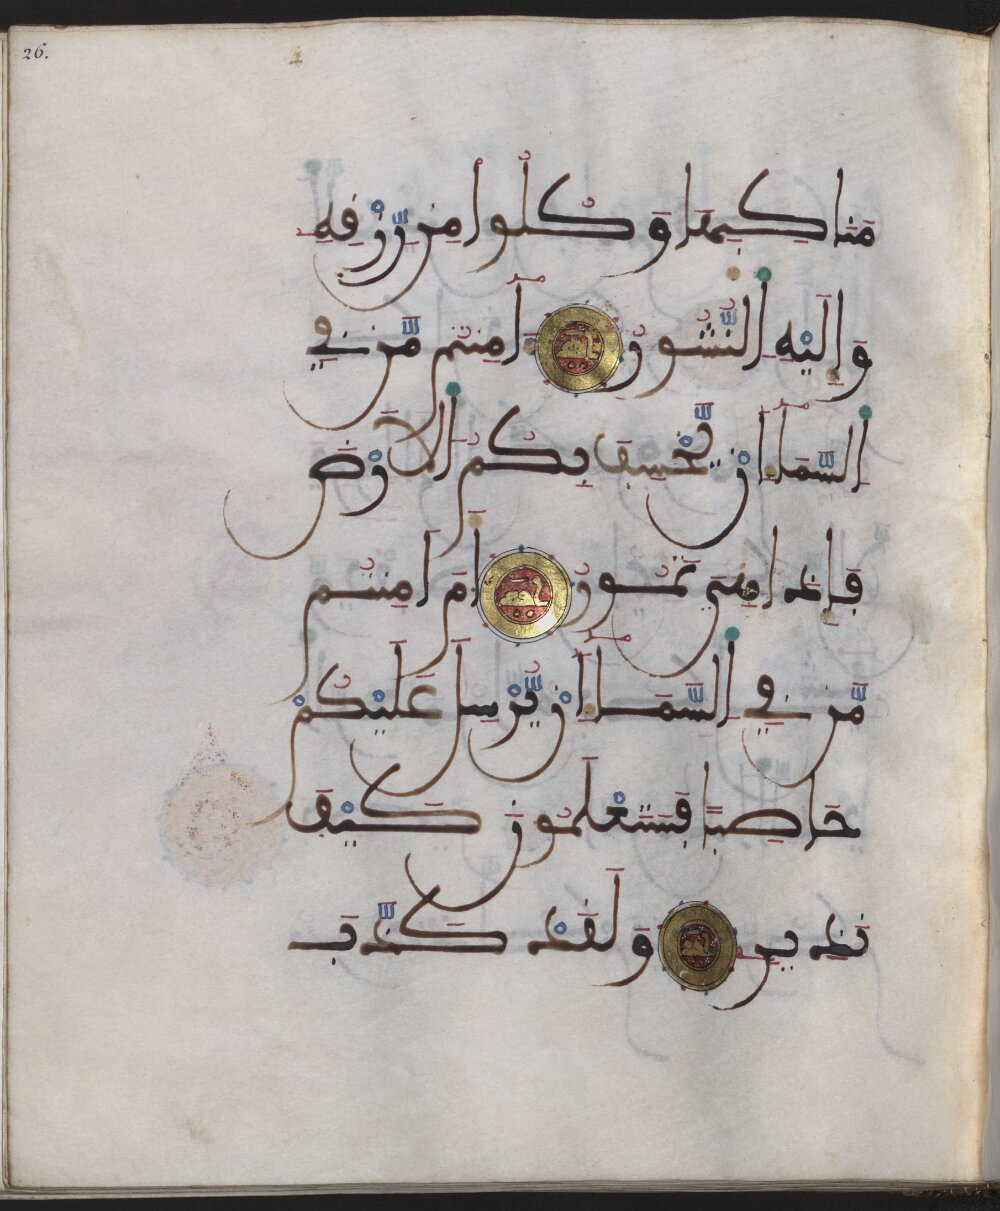 26.
مَنَاكِبِهَا وَكُلُوا مِن رِّزْقِهِ
وَإِلَيْهِ النُّشُورُ ءَامِنتُم مَّن فِي
السَّمَاءِ أَن يَّخْسِفَ بِكُمُ الْأَرْضَ
فَإِذَا هِيَ تَمُورُ أَمْ أَمِنتُم
مَّن فِي السَّمَاءِ أَن يُّرْسِلَ عَلَيْكُمْ
حَاصِبًا فَسَتَعْلَمُونَ كَيْفَ
نَذِيرِ وَلَقَدْ كَذَّبَ